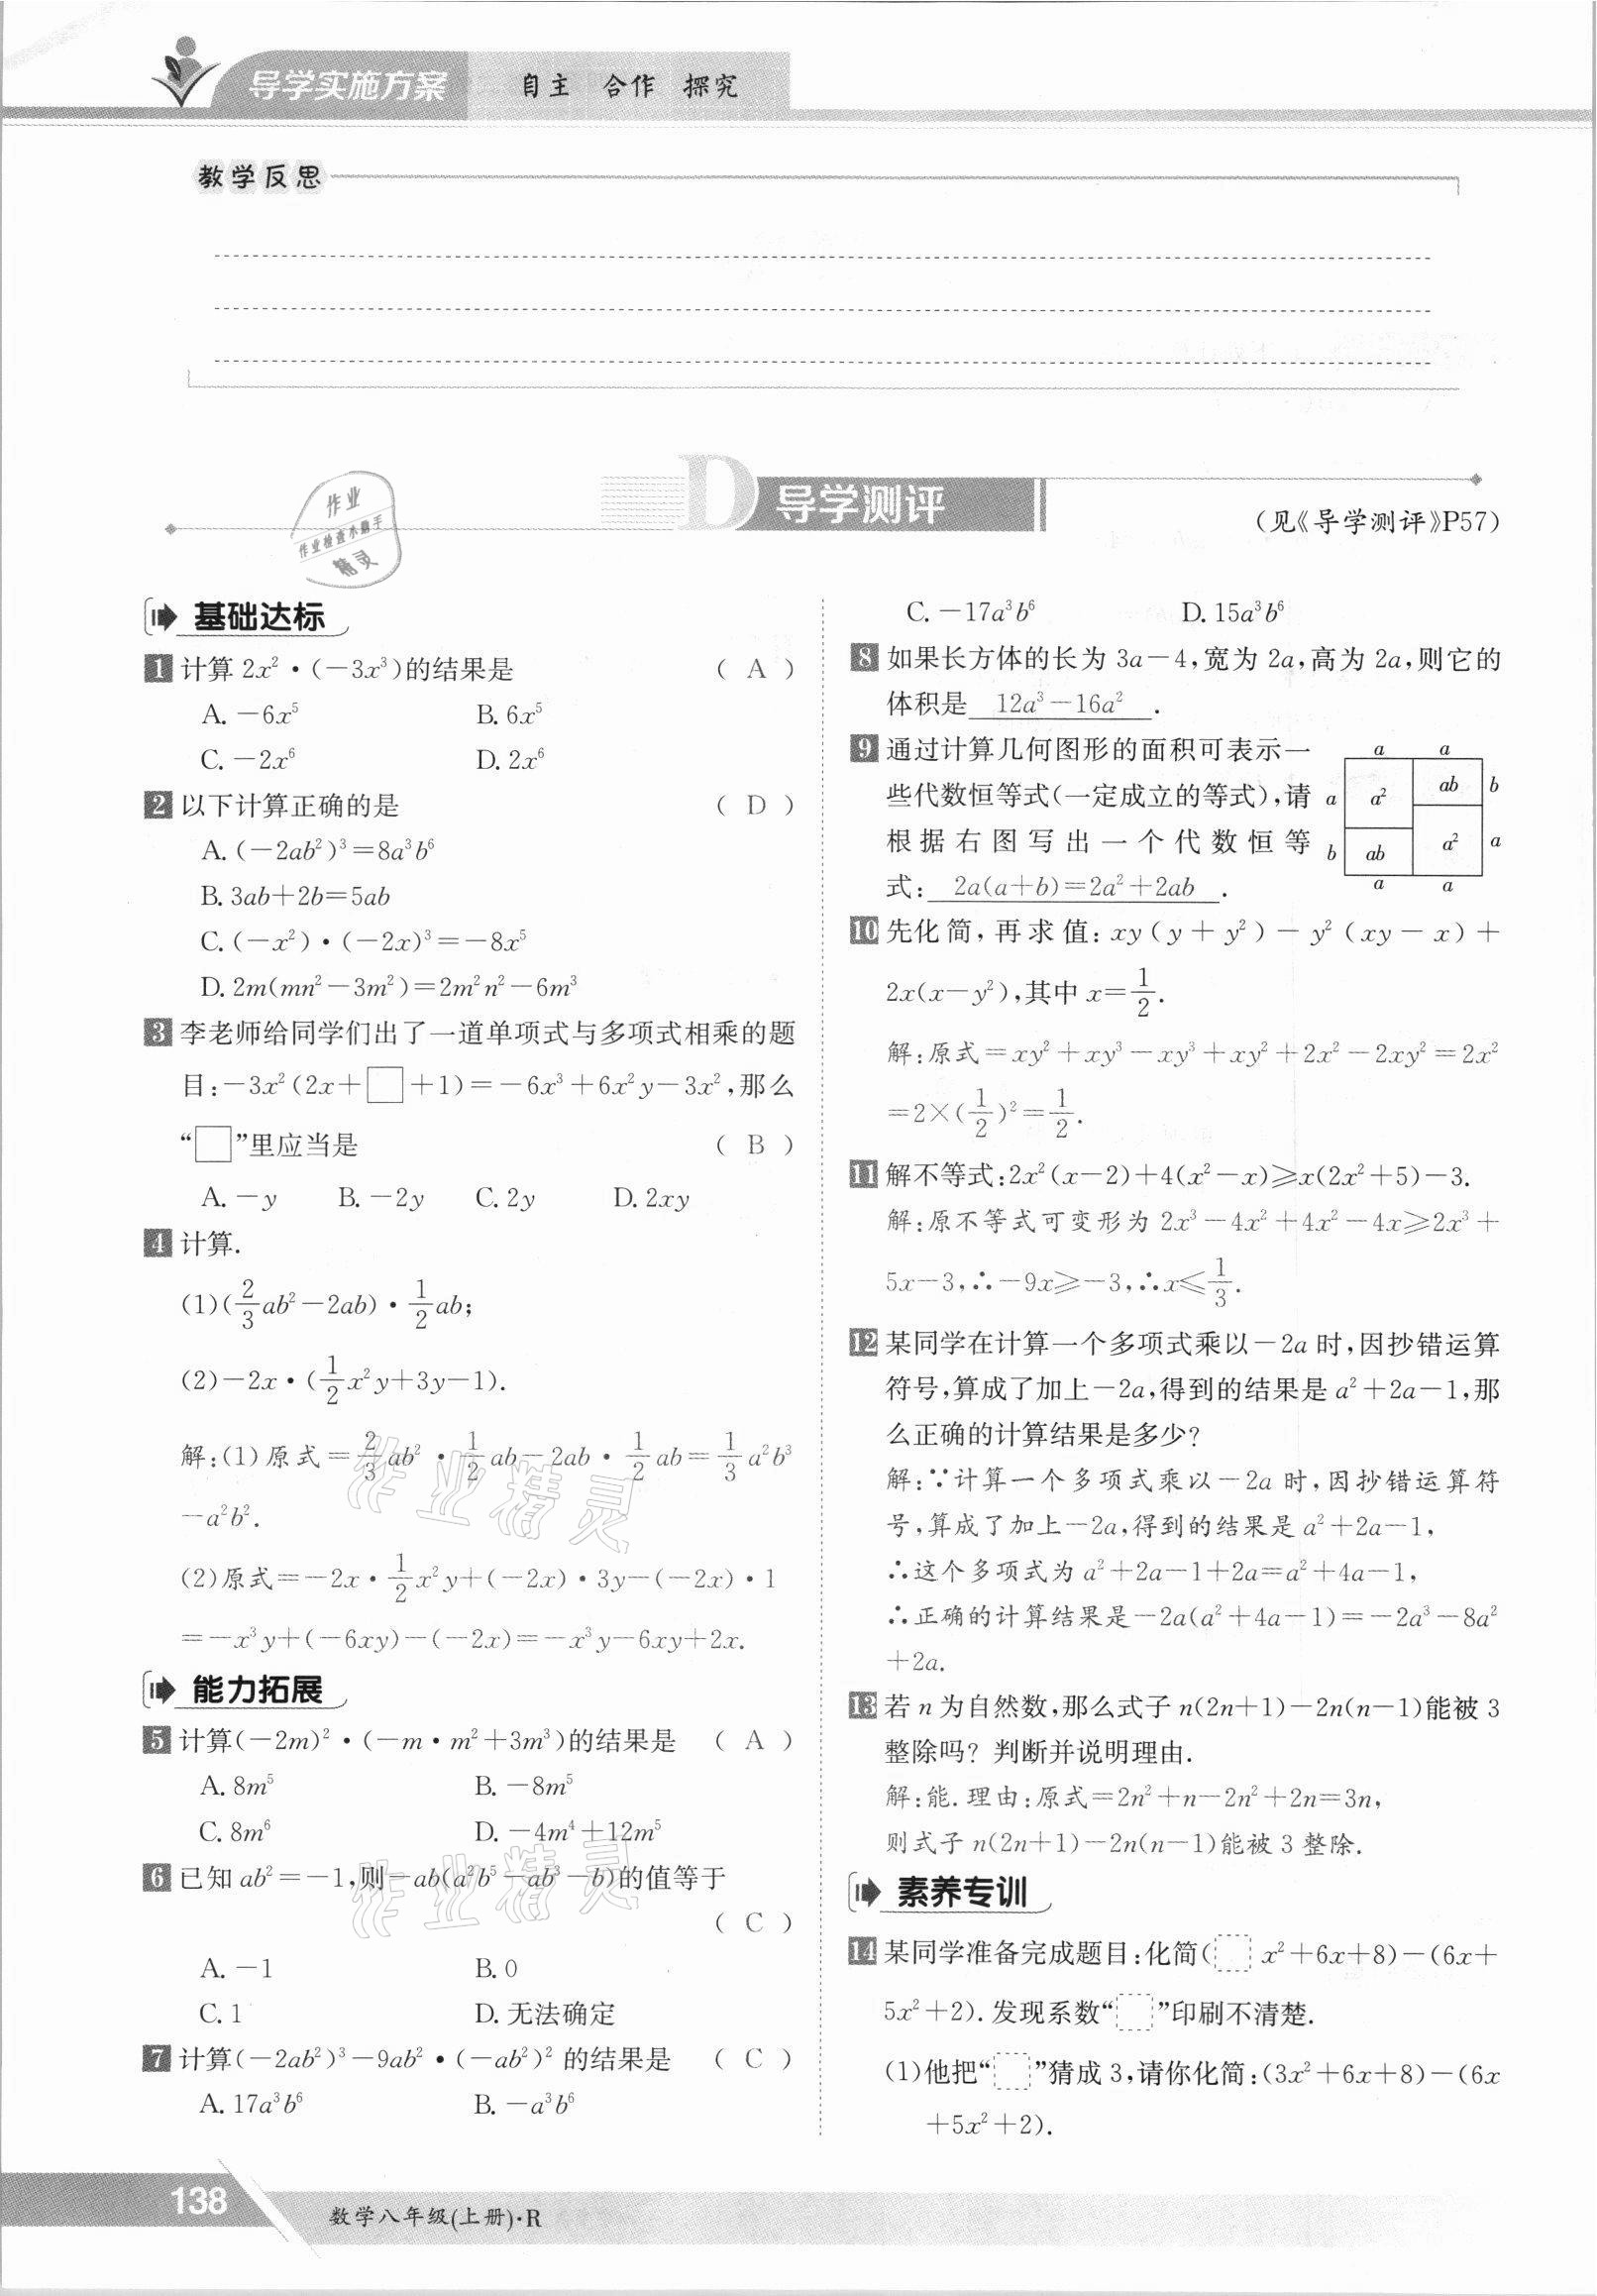 导学实施方案 自主 合作 探究
教学反思
D 导学测评
(见《导学测评》P57)
作业
作业检查小助手
精灵
基础达标
1 计算 2x²·(-3x³)的结果是 ( A )
A. -6x⁵ B. 6x⁵
C. -2x⁶ D. 2x⁶
2 以下计算正确的是 ( D )
A. (-2ab²)³=8a³b⁶
B. 3ab+2b=5ab
C. (-x²)·(-2x)³=-8x⁵
D. 2m(mn²-3m²)=2m²n²-6m³
3 李老师给同学们出了一道单项式与多项式相乘的题
目:-3x²(2x+□+1)=-6x³+6x²y-3x²,那么
“□”里应当是 ( B )
A. -y B. -2y C. 2y D. 2xy
4 计算.
(1)(2/3ab²-2ab)·1/2ab;
(2)-2x·(1/2x²y+3y-1).
解:(1)原式=2/3ab²·1/2ab-2ab·1/2ab=1/3a²b³
-a²b².
(2)原式=-2x·1/2x²y+(-2x)·3y-(-2x)·1
=-x³y+(-6xy)-(-2x)=-x³y-6xy+2x.
能力拓展
5 计算(-2m)²·(-m·m²+3m³)的结果是 ( A )
A. 8m⁵ B. -8m⁵
C. 8m⁶ D. -4m⁴+12m⁵
6 已知 ab²=-1,则-ab(a²b⁵-ab³-b)的值等于
( C )
A. -1 B. 0
C. 1 D. 无法确定
7 计算(-2ab²)³-9ab²·(-ab²)² 的结果是 ( C )
A. 17a³b⁶ B. -a³b⁶
C. -17a³b⁶ D. 15a³b⁶
8 如果长方体的长为 3a-4,宽为 2a,高为 2a,则它的
体积是 12a³-16a² .
9 通过计算几何图形的面积可表示一
些代数恒等式(一定成立的等式),请
根据右图写出一个代数恒等
式: 2a(a+b)=2a²+2ab .
a a
a a² ab b
b ab a² a
a a
10 先化简,再求值:xy(y+y²)-y²(xy-x)+
2x(x-y²),其中 x=1/2.
解:原式=xy²+xy³-xy³+xy²+2x²-2xy²=2x²
=2×(1/2)²=1/2.
11 解不等式:2x²(x-2)+4(x²-x)≥x(2x²+5)-3.
解:原不等式可变形为 2x³-4x²+4x²-4x≥2x³+
5x-3,∴-9x≥-3,∴x≤1/3.
12 某同学在计算一个多项式乘以-2a 时,因抄错运算
符号,算成了加上-2a,得到的结果是 a²+2a-1,那
么正确的计算结果是多少?
解:∵计算一个多项式乘以-2a 时,因抄错运算符
号,算成了加上-2a,得到的结果是 a²+2a-1,
∴这个多项式为 a²+2a-1+2a=a²+4a-1,
∴正确的计算结果是-2a(a²+4a-1)=-2a³-8a²
+2a.
13 若 n 为自然数,那么式子 n(2n+1)-2n(n-1)能被 3
整除吗? 判断并说明理由.
解:能. 理由:原式=2n²+n-2n²+2n=3n,
则式子 n(2n+1)-2n(n-1)能被 3 整除.
素养专训
14 某同学准备完成题目:化简(□ x²+6x+8)-(6x+
5x²+2). 发现系数“□”印刷不清楚.
(1)他把“□”猜成 3,请你化简:(3x²+6x+8)-(6x
+5x²+2).
作业精灵
作业精灵
138 数学八年级(上册)·R